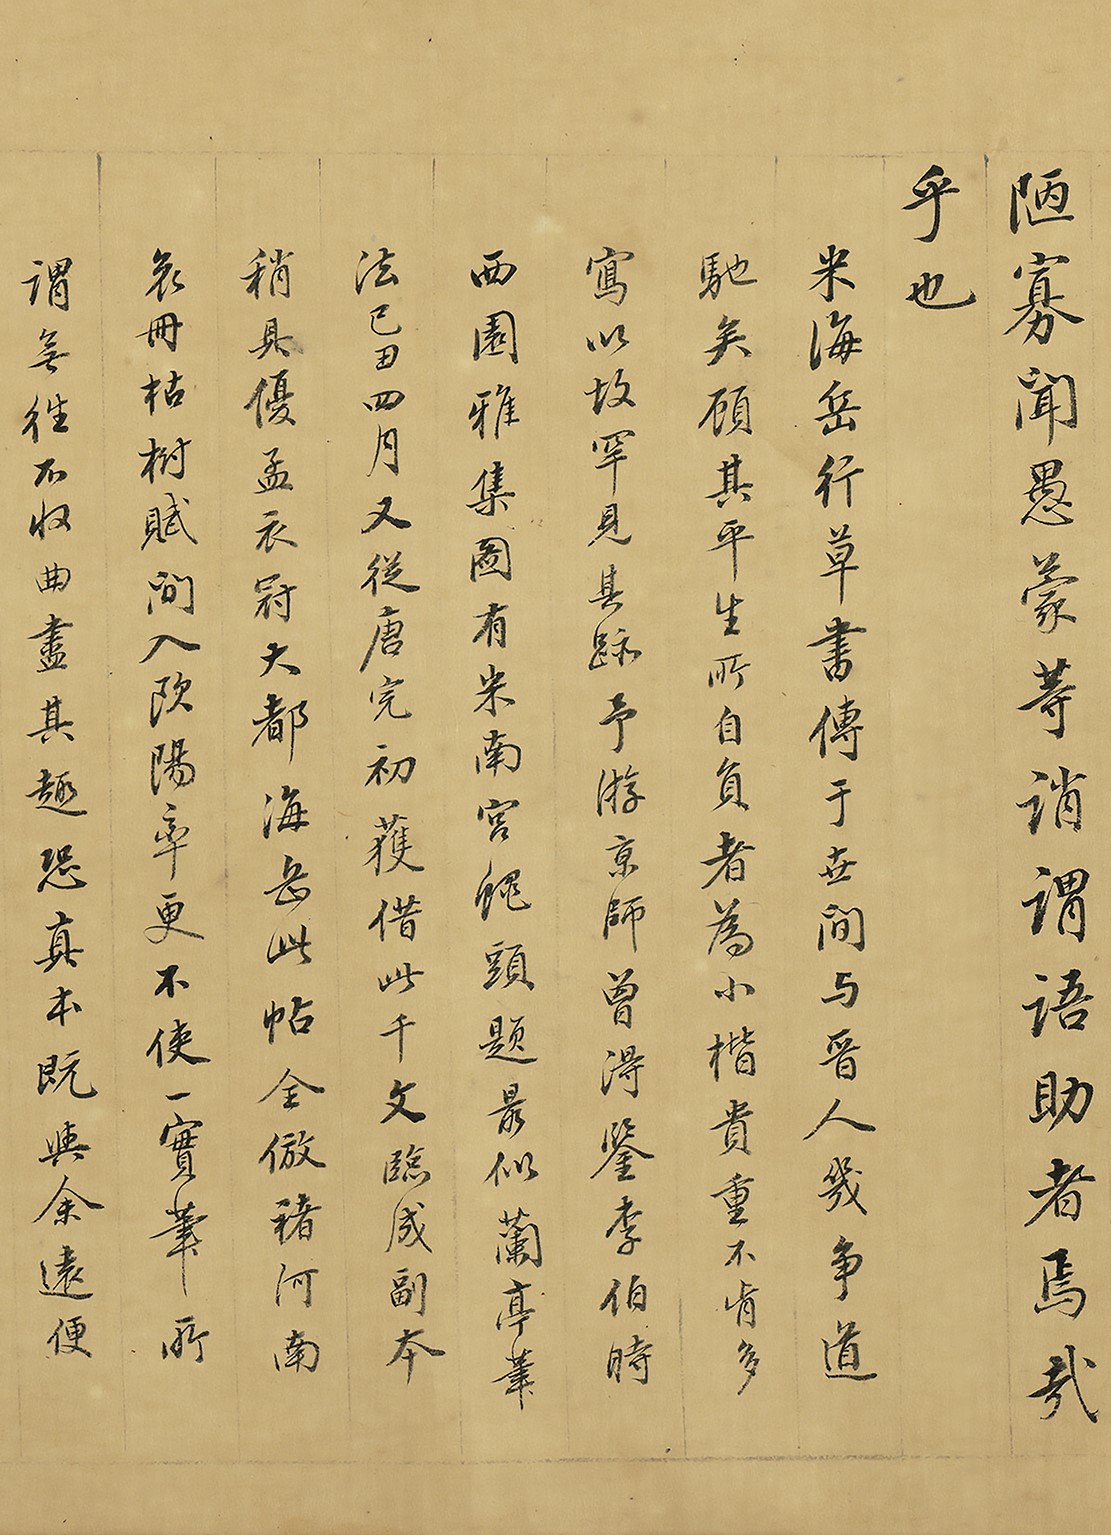 陋寡聞愚蒙等誚謂語助者焉哉
乎也
米海岳行草書傳于世間与晉人幾争道
馳矣顧其平生所自負者為小楷貴重不肯多
寫以故罕見其跡予游京師曾得鑒李伯時
西園雅集圖有米南宮蝇頭題最似蘭亭筆
法己丑四月又從唐完初獲借此千文臨成副本
稍具優孟衣冠大都海岳此帖全倣禇河南
哀冊枯樹賦間入欧陽率更不使一實筆所
謂無往不収曲盡其趣恐真本既與余遠便